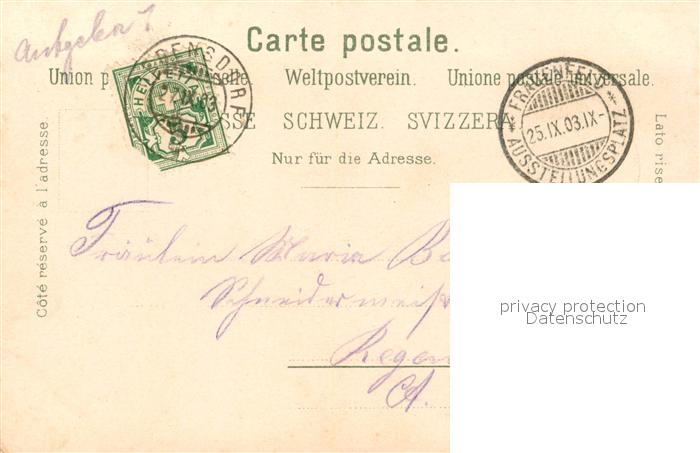 Carte postale.
Union p selle. Weltpostverein. Unione postale universale.
SSE SCHWEIZ. SVIZZERA
Nur für die Adresse.
Côté réservé à l'adresse.
Lato rise
HELVETIA
5
ENSDORF
FRAUENFELD
25.IX.03.IX-
AUSSTELLUNGSPLATZ
Fräulein Maria
Schneidermeist
Regen
privacy protection
Datenschutz